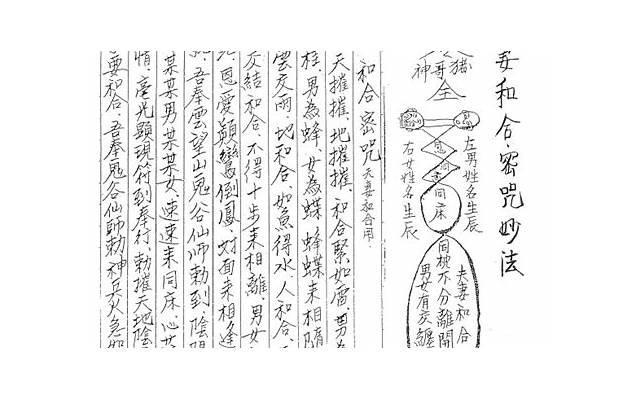 妻和合密咒妙法
豬
哥
神
全
左男姓名生辰
右女姓名生辰
同床
夫妻和合
同枕不分離開
男女有交纏
和合密咒 夫妻和合用.
天摧摧、地摧摧、和合緊如雷、男為
桂、男為蜂、女為蝶、蜂蝶來相隨
雲交雨、地和合、如魚得水人和合、
交結和合、不得十步來相離、男女
恩愛顛鸞倒鳳、对面來相逢
吾奉雲望山鬼谷仙师勅到陰陽
某某男某某女、速速來同床、心女
情、毫光顯現符到奉行、勅摧天地陰
要和合、吾奉鬼谷仙師勅神兵火急如